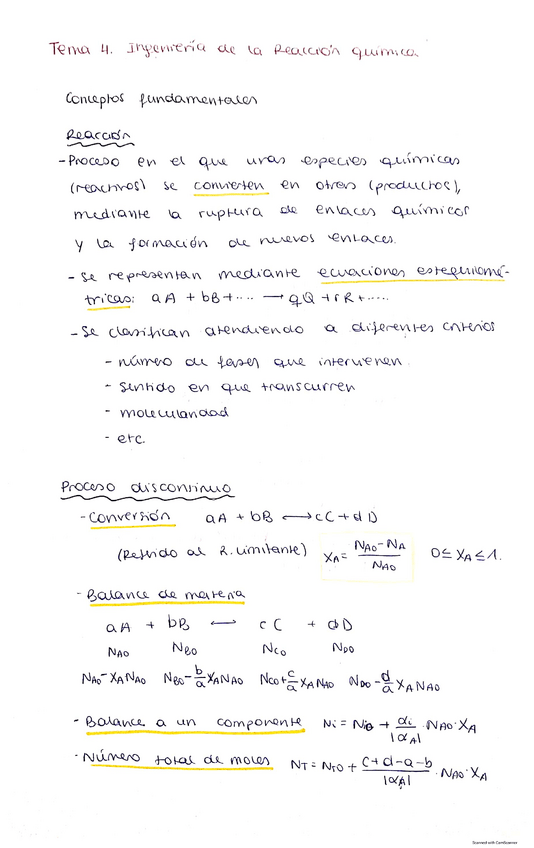 Tema 4. Ingeniería de la Reacción química
Conceptos fundamentales
Reacción
- Proceso en el que unas especies químicas
(reactivos) se convierten en otras (productos),
mediante la ruptura de enlaces químicos
y la formación de nuevos enlaces.
- Se representan mediante ecuaciones estequiomé-
tricas: aA + bB + .... → qQ + rR + .....
- Se clasifican atendiendo a diferentes criterios
- número de fases que intervienen.
- sentido en que transcurren
- molecularidad
- etc.
Proceso discontinuo
- Conversión aA + bB ⟷ cC + dD
(Referido al R. limitante) XA = (NA0 - NA) / NA0 0 ≤ XA ≤ 1.
- Balance de materia
aA + bB ⟷ cC + dD
NA0 NB0 NC0 ND0
NA0 - XA NA0 NB0 - b/a XA NA0 NC0 + c/a XA NA0 ND0 - d/a XA NA0
- Balance a un componente Ni = Ni0 + αi/|αA| · NA0 · XA
- Número total de moles NT = NT0 + (c + d - a - b)/|αA| · NA0 · XA
Scanned with CamScanner